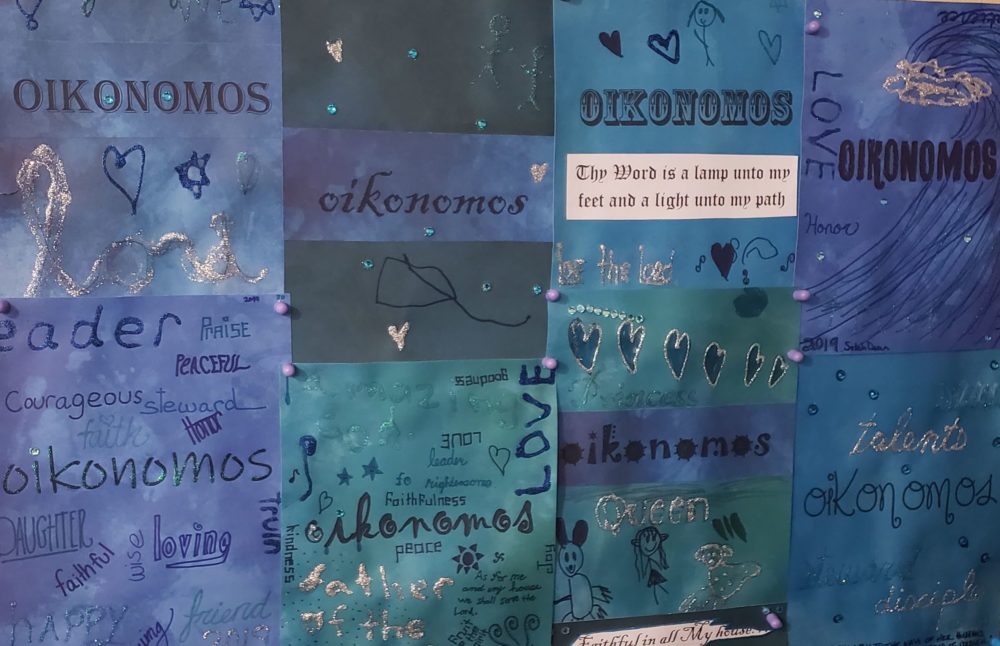 OIKONOMOS
lord
oikonomos
OIKONOMOS
Thy Word is a lamp unto my
feet and a light unto my path
be the
LOVE
OIKONOMOS
Honor
2019
2019
eader
PRAISE
PEACEFUL
Courageous
steward
faith
Honor
oikonomos
DAUGHTER
TRUTH
faithful
wise
loving
HAPPY
friend
2019
goodnes
LOVE
LOVE
leader
to righteousness
Faithfulness
oikonomos
peace
kindness
hope
father
of the
As for me
and my house
we shall serve the
Lord.
princess
oikonomos
Queen
Faithful in all My house.
talents
oikonomos
steward
disciple